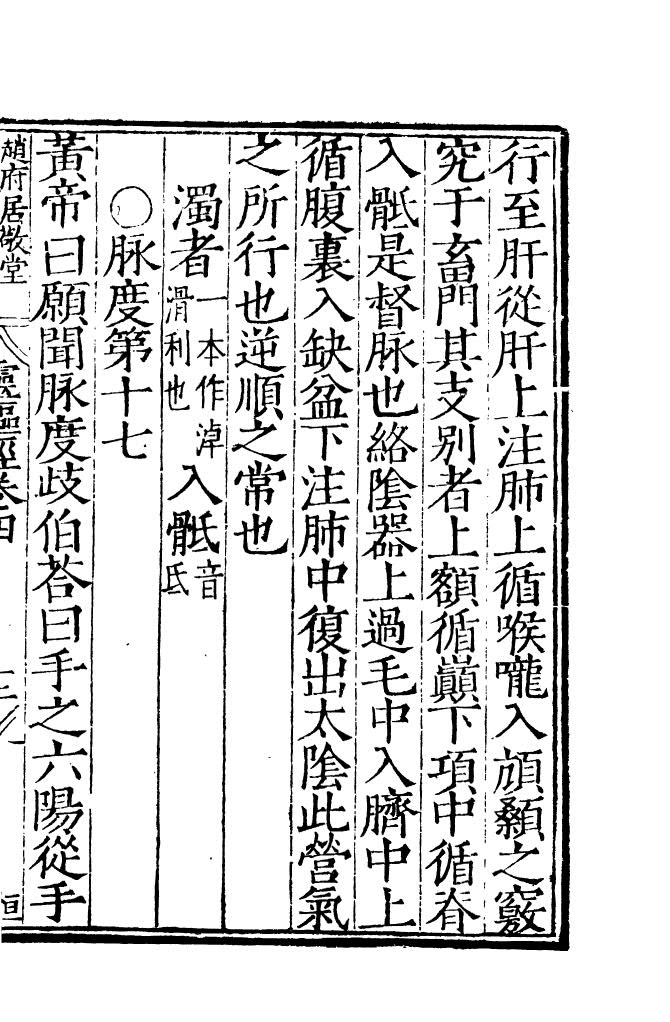 行至肝從肝上注肺上循喉嚨入頏顙之竅
究于畜門其支別者上額循巔下項中循脊
入骶是督脉也絡陰器上過毛中入臍中上
循腹裏入缺盆下注肺中復出太陰此營氣
之所行也逆順之常也
濁者一本作淖滑利也入骶音氐
○脉度第十七
黃帝曰願聞脉度歧伯荅曰手之六陽從手
趙府居敬堂
靈樞經卷四